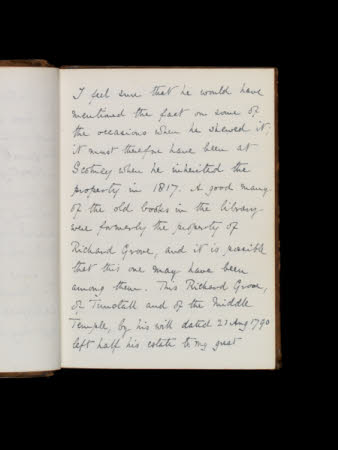 I feel sure that he would have
mentioned the fact on some of
the occasions when he shewed it;
it must therefore have been at
Scotney when he inherited the
property in 1817. A good many
of the old books in the library
were formerly the property of
Richard Grove, and it is possible
that this one may have been
among them. This Richard Grove,
of Tunstall and of the Middle
Temple, by his will dated 21 Aug 1790
left half his estate to my great